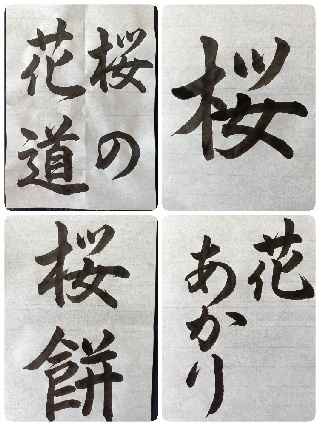 桜の
花道
桜
桜餅
花
あかり